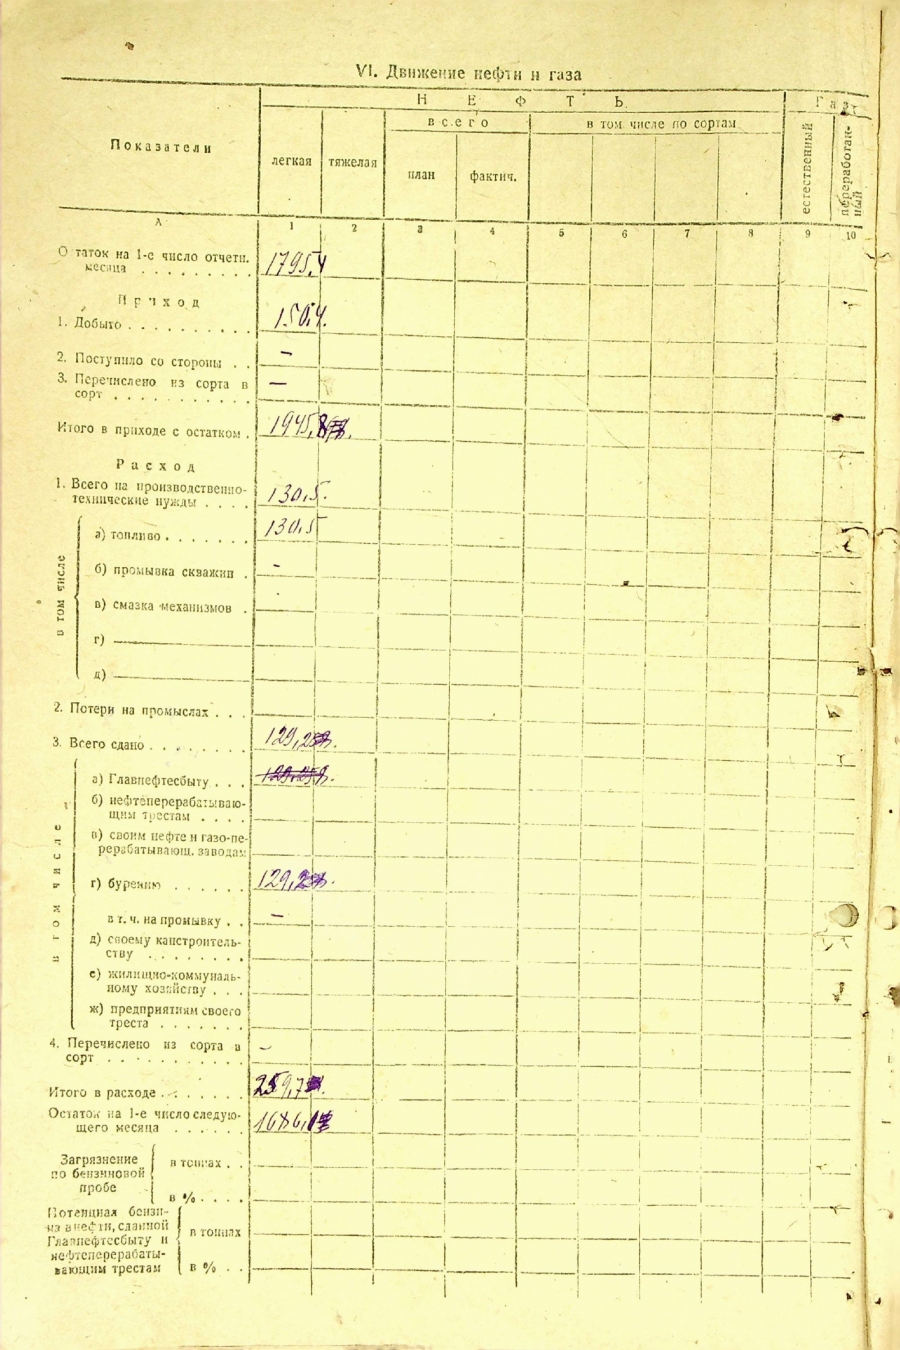 VI. Движение нефти и газа
Показатели
НЕФТЬ
Газ
легкая
тяжелая
всего
план
фактич.
в том числе по сортам
естественный
переработан-
ный
А 1 2 3 4 5 6 7 8 9 10
О таток на 1-е число отчетн.
месяца . . . . . . . . 1795,4
Приход
1. Добыто . . . . . . . . . 150,4.
2. Поступило со стороны . . –
3. Перечислено из сорта в
сорт . . . . . . . . . . –
Итого в приходе с остатком . 1945,8
Расход
1. Всего на производственно-
технические нужды . . . . 130,5.
в том числе
а) топливо . . . . . . . 130,5
б) промывка скважин . –
в) смазка механизмов .
г)
д)
2. Потери на промыслах . . .
3. Всего сдано . . . . . . . . 129,2
в том числе
а) Главнефтесбыту . . .
б) нефтеперерабатываю-
щим трестам . . . .
в) своим нефте и газо-пе-
рерабатывающ. заводам
г) бурению . . . . . . 129,2
в т. ч. на промывку . . –
д) своему капстроитель-
ству . . . . . . . .
е) жилищно-коммуналь-
ному хозяйству . . .
ж) предприятиям своего
треста . . . . . . .
4. Перечислено из сорта в
сорт . . . . . . . . . . –
Итого в расходе . . . . . . . 259,7
Остаток на 1-е число следую-
щего месяца . . . . . . 1686,1
Загрязнение
по бензиновой
пробе
в тоннах . .
в % . . . .
Потенциал бензи-
на в нефти, сданной
Главнефтесбыту и
нефтеперерабаты-
вающим трестам
в тоннах
в % . .